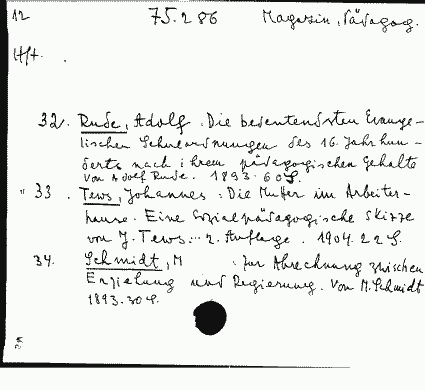 12 75.286 Magazin, Pädagog.
Hft. .
32. Rude, Adolf : Die bedeutendsten Evange-
lischen Schulordnungen des 16. Jahrhun-
derts nach ihrem pädagogischen Gehalte
von Adolf Rude. 1893. 60 S.
" 33. Tews, Johannes : Die Mutter im Arbeiter-
hause. Eine sozialpädagogische Skizze
von J. Tews... 2. Auflage. 1904. 22 S.
34. Schmidt, M : Zur Abrechnung zwischen
Erziehung und Regierung. Von M. Schmidt
1893. 30 S.